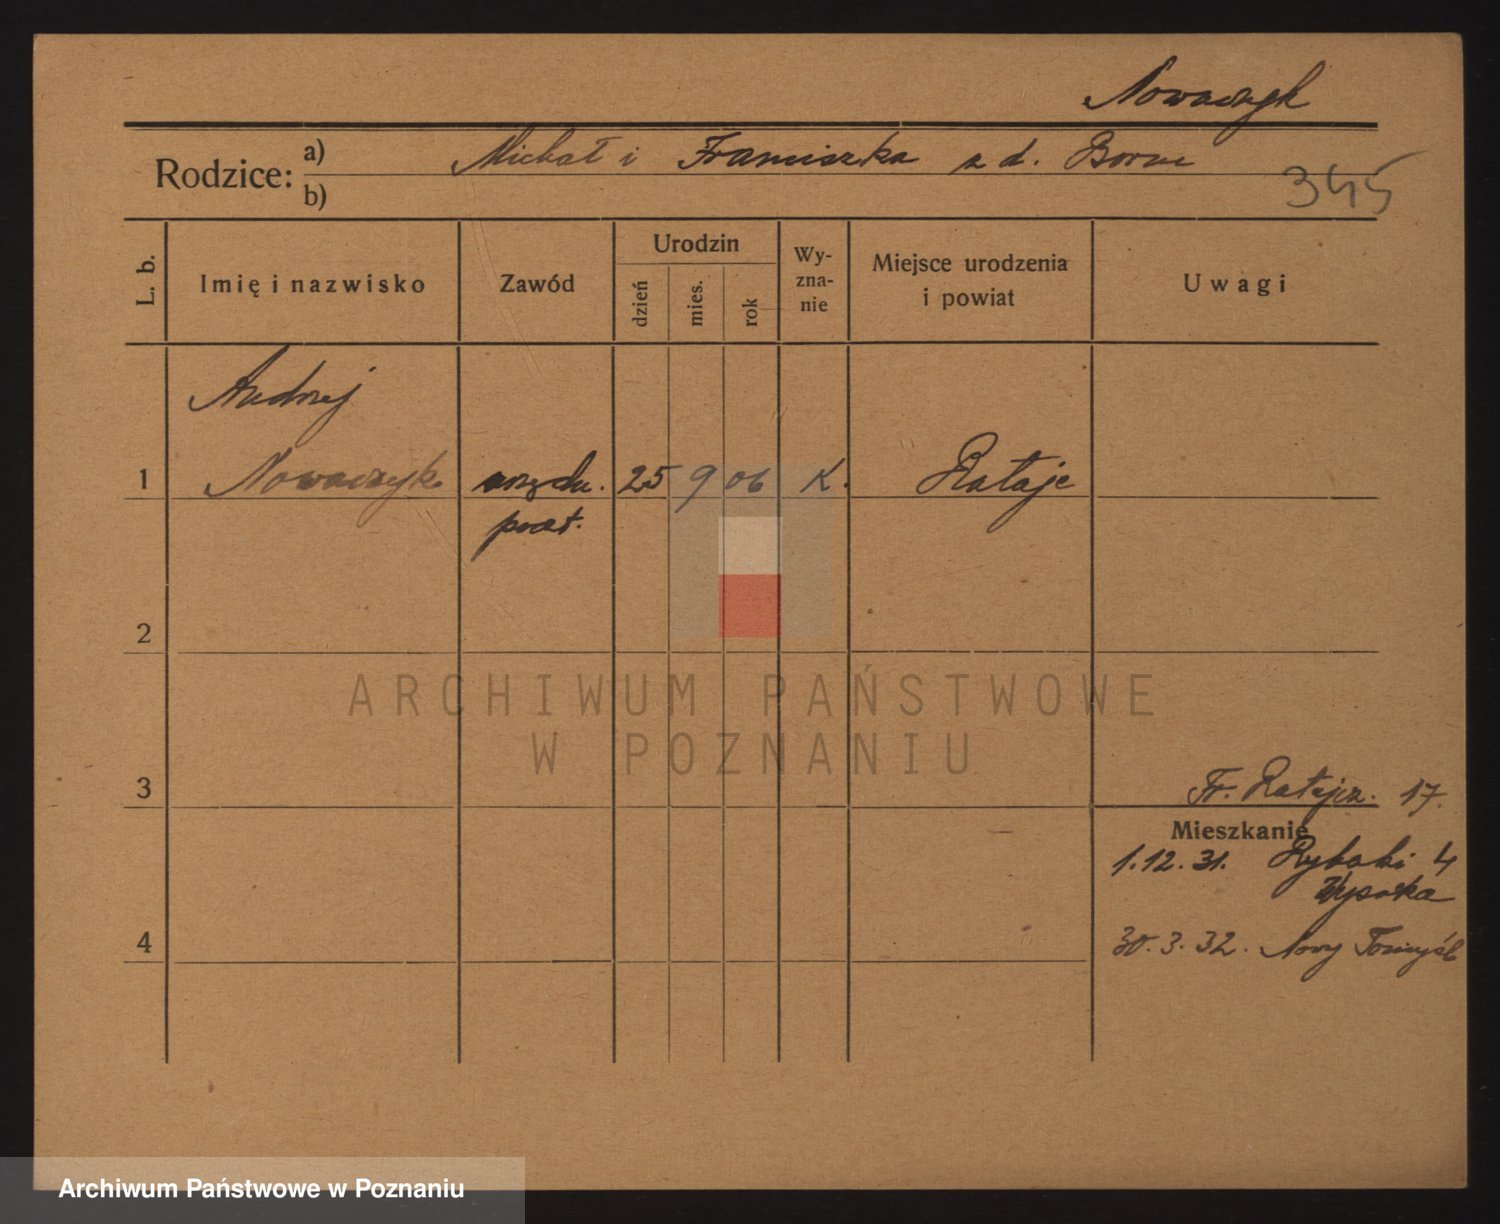 Nowaczyk
Rodzice:
a) Michał i Franciszka z d.
b)
345
L. b.
Imię i nazwisko
Zawód
Urodzin
dzień
mies.
rok
Wy-
zna-
nie
Miejsce urodzenia
i powiat
Uwagi
Andrzej
1 Nowaczyk urzędn. 25 9 06 K. Rataje
poczt.
2
ARCHIWUM PAŃSTWOWE
W POZNANIU
3
Fr. Ratajcz. 17.
Mieszkanie
1.12.31. Rybaki 4
Wysocka
4
30.3.32. Nowy Tomyśl
Archiwum Państwowe w Poznaniu